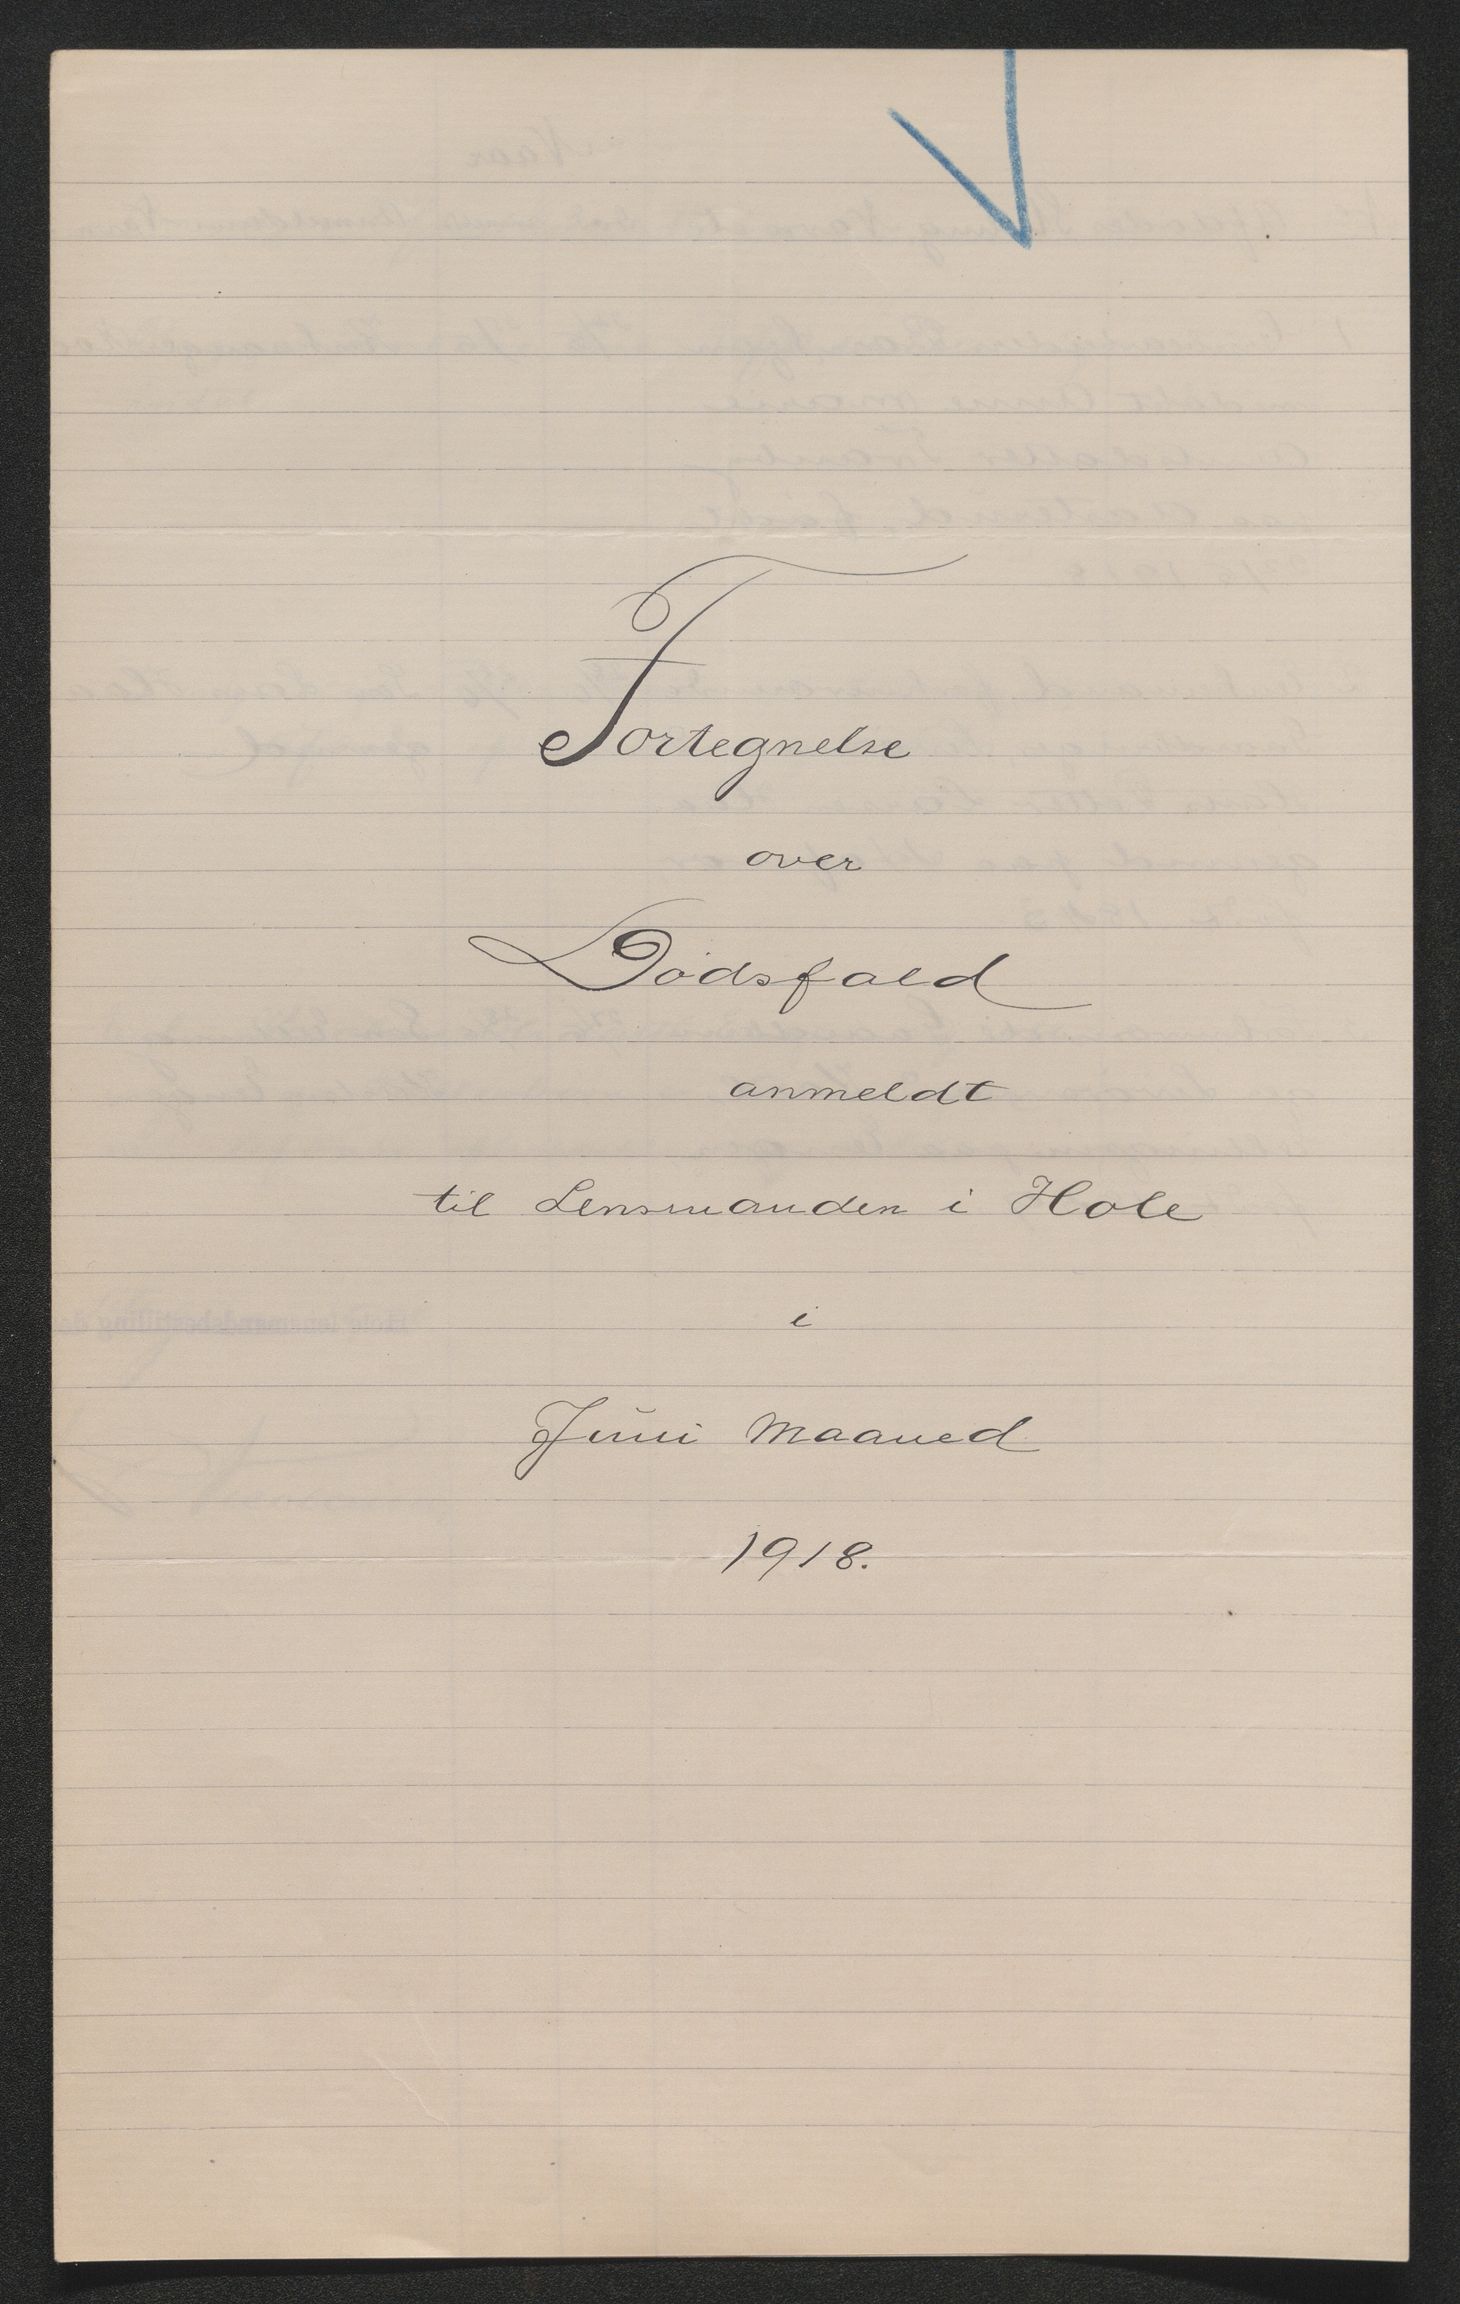 Fortegnelse
over
Dødsfald
anmeldt
til Lensmanden i Hole
i
Juni Maaned
1918.